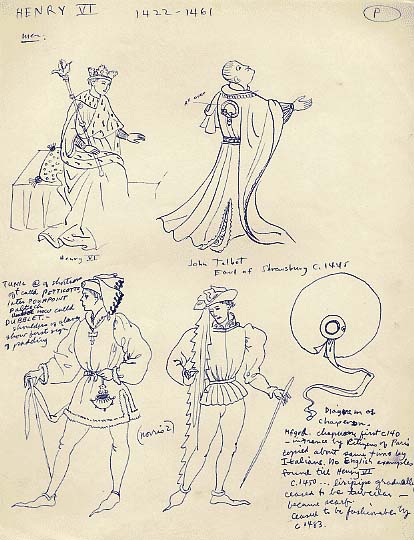 HENRY VI 1422-1461
P
Men.
Henry VI
John Talbot
Earl of Shrewsbury c.1445
TUNIC
called PETTICOTE
later POURPOINT
now called
DUBLET.
shoulders of
show first sign
of padding
(norris 2)
Diagram of
chaperon.
chaperon first c140
by citizens of Paris
copied about same time by
Italians. No English examples
found till Henry VI
c.1450 ... liripipe gradually
ceased to be tubular -
became scarf.
Ceased to be fashionable by
c 1483.